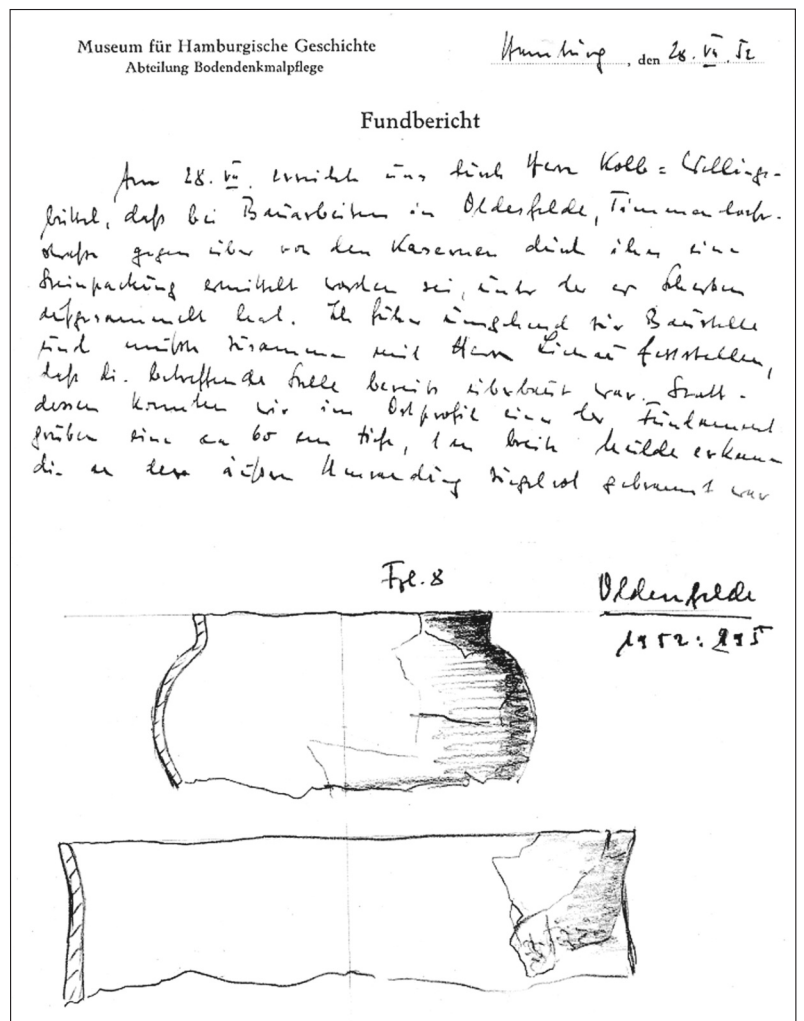 Museum für Hamburgische Geschichte
Abteilung Bodendenkmalpflege
Hamburg, den 28. VII. 52
Fundbericht
Am 28. VII. erreicht uns durch Herrn Kolb = Wellings-
büttel, daß bei Bauarbeiten in Oldesfelde, Timmendorfer-
straße gegenüber von den Kasernen durch ihn eine
Steinpackung ermittelt worden sei, unter der er Scherben
aufgesammelt hat. Ich fuhr umgehend zur Baustelle
und mußte zusammen mit Herrn feststellen,
daß die betreffende Stelle bereits überbaut war. Statt-
dessen konnten wir im Ostprofil einer der Fundament
gruben eine ca 60 cm tiefe, 1 m breite Mulde erkennen
die an ihrer äußeren Umrandung ziegelrot gebrannt war
Fpl. 8
Oldenfelde
1952: 295